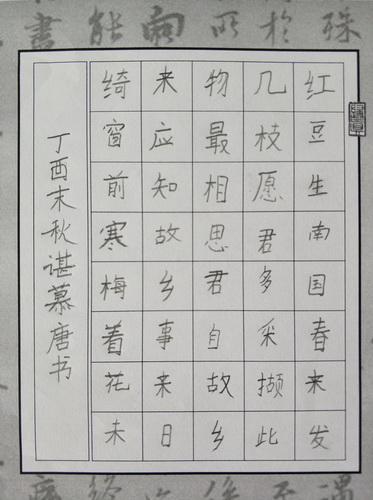 红豆生南国春来发
几枝愿君多采撷此
物最相思君自故乡
来应知故乡事来日
绮窗前寒梅着花未
丁酉末秋谌慕唐书